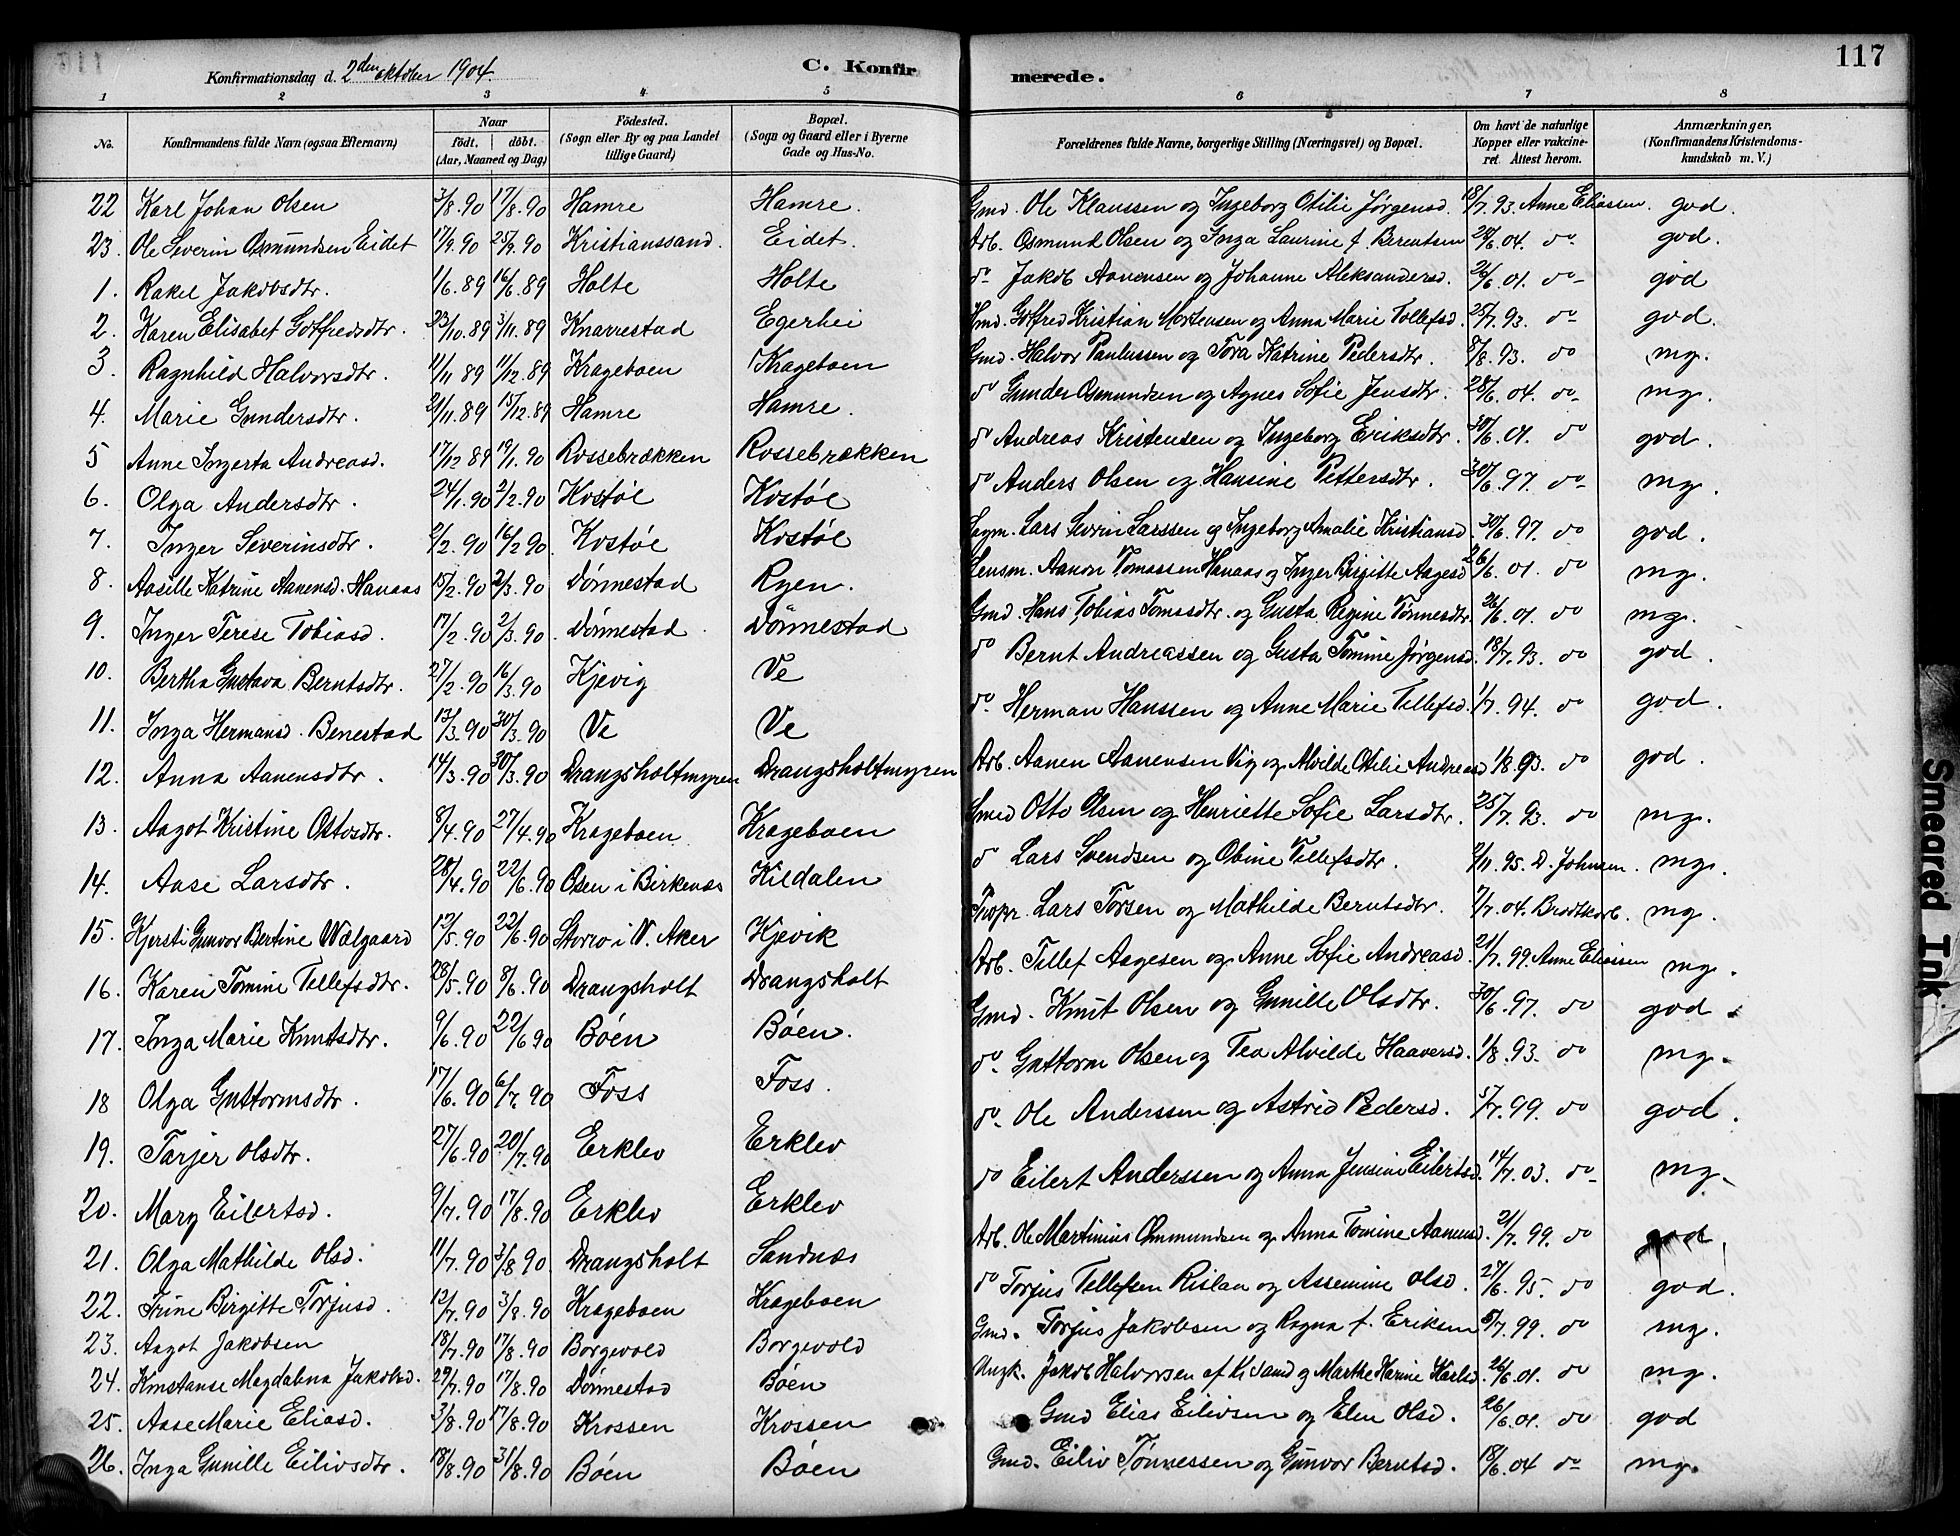 117
Konfirmationsdag d. 2den oktober 1904.
C. Konfirmerede.
1 2 3 4 5 6 7 8
No. Konfirmandens fulde Navn (ogsaa Efternavn) Naar født. døbt. (Aar, Maaned og Dag) Fødested. (Sogn eller By og paa Landet tillige Gaard) Bopæl. (Sogn og Gaard eller i Byerne Gade og Hus-No. Forældrenes fulde Navne, borgerlige Stilling (Næringsvei) og Bopæl. Om havt de naturlige Kopper eller vakcineret. Attest herom. Anmærkninger, (Konfirmandens Kristendomskundskab m. V.)
22 Karl Johan Olsen 3/8.90 17/8.90 Hamre Hamre. Gmd. Ole Klaussen og Ingeborg Otilie Jørgensd. 18/7.93. Anne Eliassen. god.
23. Ole Severin Osmundsen Eidet 17/9.90 25/9.90 Kristianssand. Eidet. Arb. Osmund Olsen og Inga Laurine f. Berentsen 28/6.04. do god.
1. Rakel Jakobsdtr. 1/6.89 16/6.89 Holte Holte do Jakob Aanensen og Johanne Aleksandersd. 26/6.01. do god
2. Karen Elisabet Gotfredsdtr. 23/10.89 3/11.89 Knarrestad Egerhei Hmd. Gotfred Kristian Mortensen og Anna Marie Tollefsd. 25/7.93. do god.
3. Ragnhild Halvorsdtr. 11/11 89 11/12.89 Krageboen Krageboen Gmd. Halvor Paulussen og Tora Katrine Pedersdtr. 8/8.93. do mg.
4. Marie Gundersdtr. 21/11.89 15/12.89 Hamre Hamre. do Gunder Osmundsen og Agnes Sofie Jensdtr. 28/6.04. do mg.
5 Anne Ingerta Andreasd. 17/12 89 19/1.90 Rossebrækken Rossebrækken do Andreas Kristensen og Ingeborg Eriksdtr. 30/6.01. do god
6. Olga Andersdtr. 24/1.90 2/2.90 Kostøl Kostøl do Anders Olsen og Hansine Pettersdtr. 30/6.97. do mg.
7. Inger Severinsdtr. 2/2.90 16/2 90 Kostøl Kostøl Lars Severin Larssen og Ingeborg Amalie Kristiansd. 30/6.97. do god.
8. Aasille Katrine Aanensd. Hanaas 15/2.90 2/3.90 Dønnestad Ryen. Lensm. Aanon Tomassen Hanaas og Inger Birgitte Aagesd 26/6.01. do mg.
9. Inger Terese Tobiasd. 17/2.90 2/3.90 Dønnestad Dønnestad Gmd. Hans Tobias Tomasdtr. og Gusta Regine Tønnesdtr. 26/6.01. do mg.
10. Bertha Gustava Berntsdtr. 27/2.90 16/3.90 Kjevig Ve do Bernt Andreassen og Gusta Tomine Jørgensd. 18/7.93. do god.
11. Inga Hermansd. Benestad 13/3.90 30/3.90 Ve Ve do. Herman Hanssen og Anne Marie Tellefsd. 1/7.94. do god.
12. Anna Aanensdtr. 14/3.90 30/3.90 Drangsholtmyren Drangsholtmyren Arb. Aanen Aanensen Vig og Alvilde Otilie Andreasd 1/8.93. do god.
13. Aagot Kristine Ottosdtr. 8/4.90 27/4.90 Krageboen Krageboen Gmd Otto Olsen og Henriette Sofie Larsdtr. 25/7.93. do mg.
14. Aase Larsdtr. 28/4.90 22/6.90 Osen i Birkenæs Kildalen do Lars Svendsen og Obine Tellefsdtr. 2/11.95. D. Johnsen. mg.
15. Kjersti Gunvor Bertine Walgaard 12/5.90 22/6.90 Storro i V. Aker Kjevik Propr. Lars Torsen og Mathilde Berntsdtr. 7/7.04. Brodtkorb. mg.
16. Karen Tomine Tellefsdtr. 28/5.90 8/6.90 Drangsholt Drangsholt Arb. Tellef Aagesen og Anne Sofie Andreasd. 21/7.99. Anne Eliassen mg.
17. Inga Marie Knutsdtr. 9/6.90 22/6 90 Bøen Bøen. Gmd. Knut Olsen og Gunille Olsdtr. 30/6.97. do god.
18 Olga Guttormsdtr. 17/6.90 6/7.90 Foss Foss. do. Guttorm Olsen og Tea Alvilde Haaversd. 1/8.93. do mg.
19. Tarjer Olsdtr. 27/6.90 20/7.90 Erklev Erklev do. Ole Anderssen og Astrid Pedersd. 5/7.99. do god.
20. Mary Eilertsd. 9/7.90 17/8.90 Erklev Erklev do Eilert Anderssen og Anna Jensine Eilertsd. 14/7.03. do mg.
21. Olga Mathilde Olsd. 11/7.90 3/8.90 Drangsholt Sandnæs Arb. Ole Martinius Ommundsen og Anna Tomine Aanensd. 21/7.99. do god.
22. Trine Birgitte Torjusd. 12/7.90 3/8.90 Krageboen Krageboen do Torjus Tellefsen Rislaa og Assemine Olsd. 27/6.95. do god.
23. Aagot Jakobsen 18/7.90 17/8.90 Borgevold Borgevold Gmd. Torjus Jakobsen og Ragna f. Eriksen 5/7.99. do mg.
24. Konstanse Magdalena Jakobsd. 29/7.90 17/8.90 Dønnestad Bøen Ungk. Jakob Halvorsen af Krsand og Marthe Karine Karlsd. 26/6.01. do mg.
25. Aase Marie Eliasd. 3/8.90 17/8.90 Krossen Krossen Gmd Elias Eilivsen og Elen Olsd. 26/6.01. do god
26. Inga Gunille Eilivsdtr. 18/8.90 31/8.90 Bøen Bøen Gmd. Eiliv Tønnessen og Gunvor Berntsd. 18/6.04 do mg.
Smeared Ink